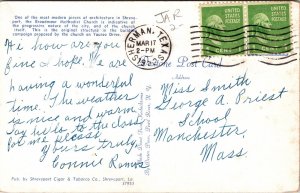 One of the most modern pieces of architecture in Shreveport, the Broadmoor Methodist Church is indicative of the progressive nature of the city, and of the church itself. This is the original structure in the building campaign proposed by the church on Youree Drive.
JAR
2
SHERMAN, TEXAS
MAR 17
2-PM
UNITED STATES POSTAGE
UNITED STATES POSTAGE
Post Card
Address
Hi how are you
fine I hope. We are
having a wonderful
time. The weather
is nice and warm
Say hello to the class
for me please
Yours truly,
Connie Ramos
Miss Smith
George A. Priest
School
Manchester,
Mass
Pub. by Shreveport Cigar & Tobacco Co., Shreveport, La.